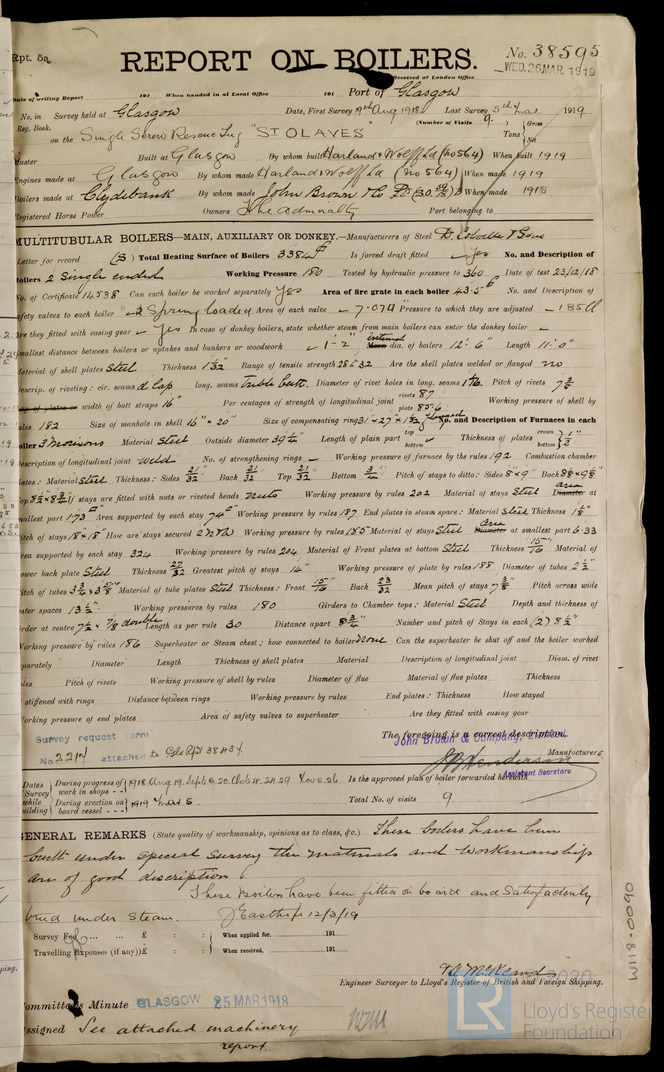 Rpt. 5a.
REPORT ON BOILERS.
No. 38595
Received at London Office
WED. 26 MAR 1919
Date of writing Report 191 When handed in at Local Office 191 Port of Glasgow
No. in Survey held at Glasgow Date, First Survey 19th Aug 1918 Last Survey 5th Mar. 1919
Reg. Book. (Number of Visits 9. ) Gross
on the Single Screw Rescue Tug "ST OLAVES" Tons Net
Master Built at Glasgow By whom built Harland & Wolff Ld (No 564) When built 1919
Engines made at Glasgow By whom made Harland & Wolff Ld (No 564) When made 1919
Boilers made at Clydebank By whom made John Brown & Co Ld When made 1918
Registered Horse Power Owners The Admiralty Port belonging to
MULTITUBULAR BOILERS—MAIN, AUXILIARY OR DONKEY.—Manufacturers of Steel D. Colville & Sons
Letter for record (S) Total Heating Surface of Boilers 3384 Is forced draft fitted yes No. and Description of
Boilers 2 Single ended Working Pressure 180 Tested by hydraulic pressure to 360 Date of test 23/12/18
No. of Certificate 14538 Can each boiler be worked separately Yes Area of fire grate in each boiler 43.5 No. and Description of
safety valves to each boiler 2 Spring loaded Area of each valve 7.07 Pressure to which they are adjusted 185
Are they fitted with easing gear yes In case of donkey boilers, state whether steam from main boilers can enter the donkey boiler -
Smallest distance between boilers or uptakes and bunkers or woodwork 1'-2" internal dia. of boilers 12'-6" Length 11'-0"
Material of shell plates Steel Thickness 1 5/32 Range of tensile strength 28 to 32 Are the shell plates welded or flanged no
Descrip. of riveting: cir. seams d lap long. seams treble butt Diameter of rivet holes in long. seams Pitch of rivets
width of butt straps 16" Per centages of strength of longitudinal joint rivets 87 plate 85.6 Working pressure of shell by
rules 182 Size of manhole in shell 16" × 20" Size of compensating ring flanged No. and Description of Furnaces in each
boiler 3 Morisons Material Steel Outside diameter 39 1/2" Length of plain part top bottom Thickness of plates crown bottom 1/2"
Description of longitudinal joint weld No. of strengthening rings - Working pressure of furnace by the rules 192 Combustion chamber
plates: Material Steel Thickness: Sides 21/32 Back 21/32 Top 21/32 Bottom 3/4" Pitch of stays to ditto: Sides 8"×9" Back
Top If stays are fitted with nuts or riveted heads nuts Working pressure by rules 202 Material of stays Steel area at
smallest part 1.73 Area supported by each stay 74 Working pressure by rules 187 End plates in steam space: Material Steel Thickness
Pitch of stays 18"×18" How are stays secured 2 nuts Working pressure by rules 185 Material of stays Steel Area at smallest part 6.33
Area supported by each stay 324 Working pressure by rules 204 Material of Front plates at bottom Steel Thickness 15/16 Material of
Lower back plate Steel Thickness 27/32 Greatest pitch of stays 14" Working pressure of plate by rules 188 Diameter of tubes 2 1/2"
Pitch of tubes Material of tube plates Steel Thickness: Front 15/16 Back 23/32 Mean pitch of stays Pitch across wide
water spaces 13 1/2" Working pressures by rules 180 Girders to Chamber tops: Material Steel Depth and thickness of
girder at centre 7 1/2 × 7/8 double Length as per rule 30 Distance apart 8 3/4" Number and pitch of Stays in each (2) 8 1/2"
Working pressure by rules 186 Superheater or Steam chest; how connected to boiler None Can the superheater be shut off and the boiler worked
separately Diameter Length Thickness of shell plates Material Description of longitudinal joint Diam. of rivet
holes Pitch of rivets Working pressure of shell by rules Diameter of flue Material of flue plates Thickness
If stiffened with rings Distance between rings Working pressure by rules End plates: Thickness How stayed
Working pressure of end plates Area of safety valves to superheater Are they fitted with easing gear
Survey request form
No. 2217 attached to Gls Rpt 38434
The foregoing is a correct description,
John Brown & Company, Limited,
Manufacturers
J Henderson
Assistant Secretary
Dates of Survey while building
During progress of work in shops - - 1918. Aug 19. Sept 6. 20. Oct 4. 24. 29. Nov 6. 26 Is the approved plan of boiler forwarded herewith
During erection on board vessel - - - 1919 Mar 5. Total No. of visits 9
GENERAL REMARKS (State quality of workmanship, opinions as to class, &c.) These boilers have been
built under special survey the materials and workmanship
are of good description
These boilers have been fitted on board and satisfactorily
tried under steam. J Easthope 12/3/19
Survey Fee ... ... £ : : When applied for, 191
Travelling Expenses (if any) £ : : When received, 191
Engineer Surveyor to Lloyd's Register of British and Foreign Shipping.
Committee's Minute GLASGOW 25 MAR 1918
Assigned See attached machinery
report.
W818-0090
LR Lloyd's Register
Foundation
2020